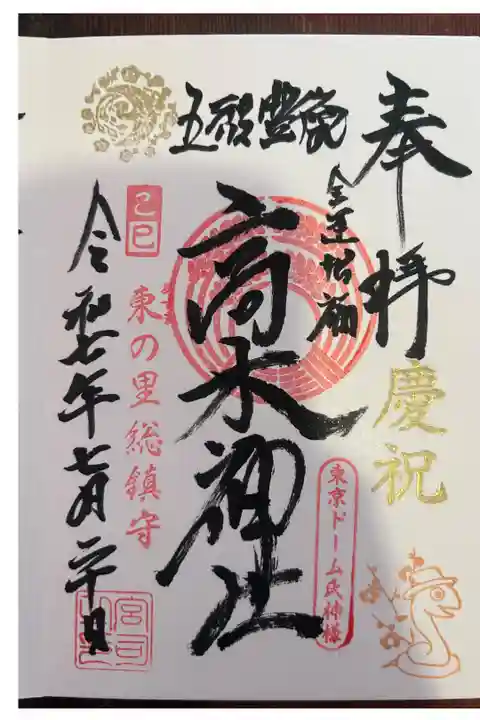 奉拝
慶祝
金運招福
五穀豊穣
高木神社
東京ドーム氏神様
己巳
東の里総鎮守
令和七年七月二十日